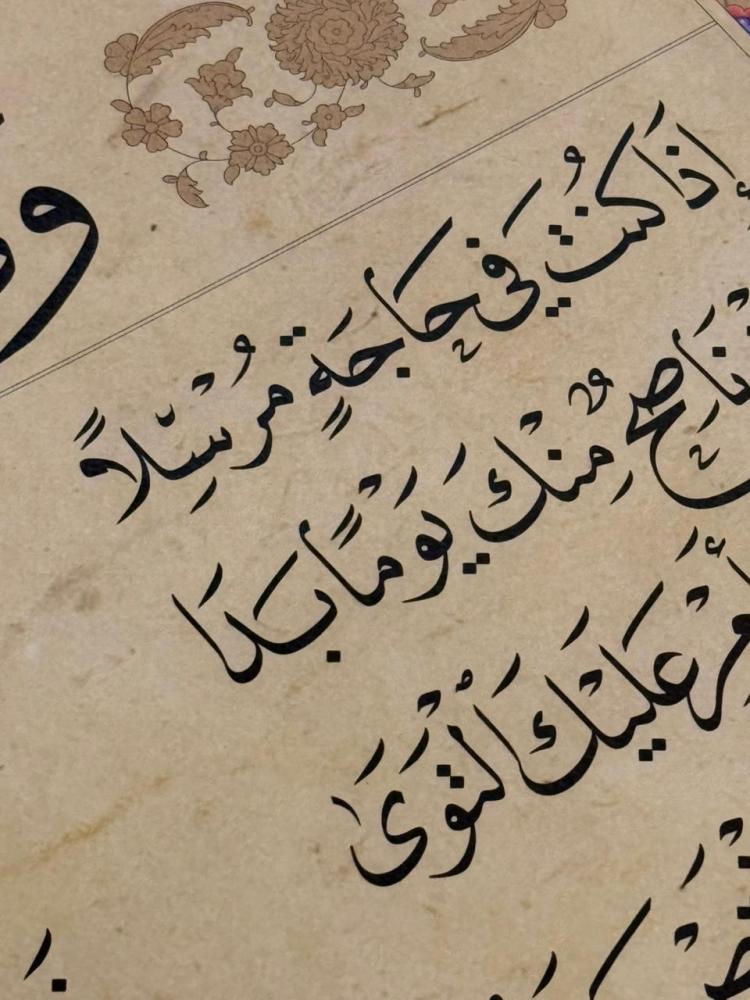 إِذَا كُنْتَ فِي حَاجَةٍ مُرْسِلًا
نَاصِحٌ مِنْكَ يَوْمًا بَدَا
أَمْر عَلَيْكَ الْتَوَى